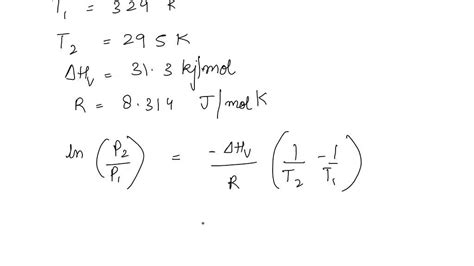 T₁ = 329 K
T₂ = 295 K
ΔHᵥ = 31.3 kj/mol
R = 8.314 J/mol K
ln (P₂/P₁) = -ΔHᵥ/R (1/T₂ - 1/T₁)